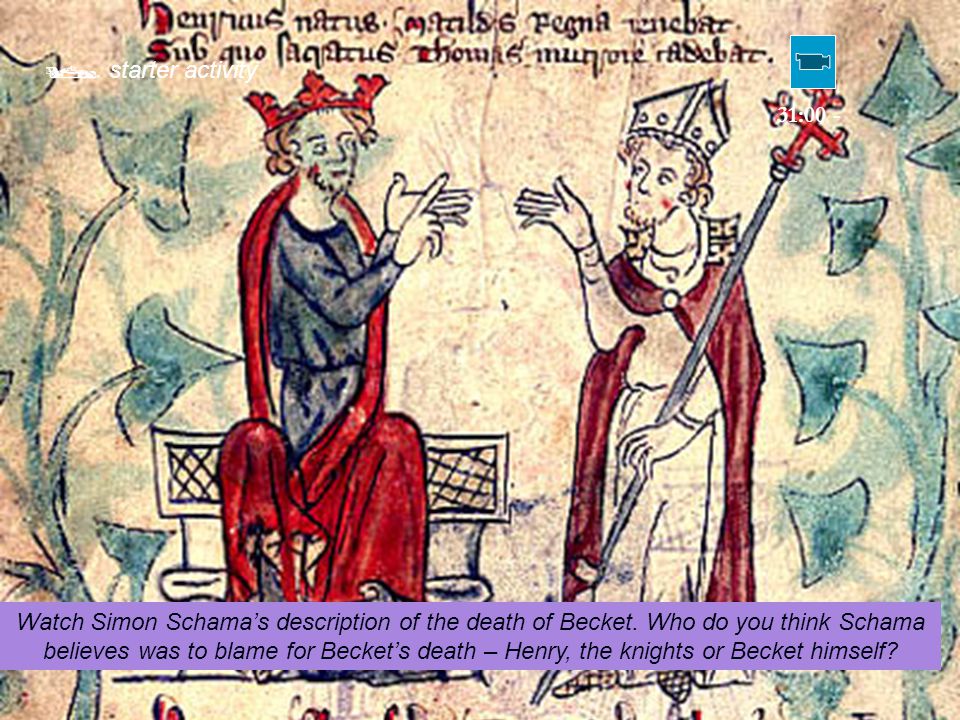 Henricus natus. Matildis regna tenebat.
Sub quo sacratus Thomas mucrone cadebat.
starter activity
31:00 -
Watch Simon Schama’s description of the death of Becket. Who do you think Schama
believes was to blame for Becket’s death – Henry, the knights or Becket himself?